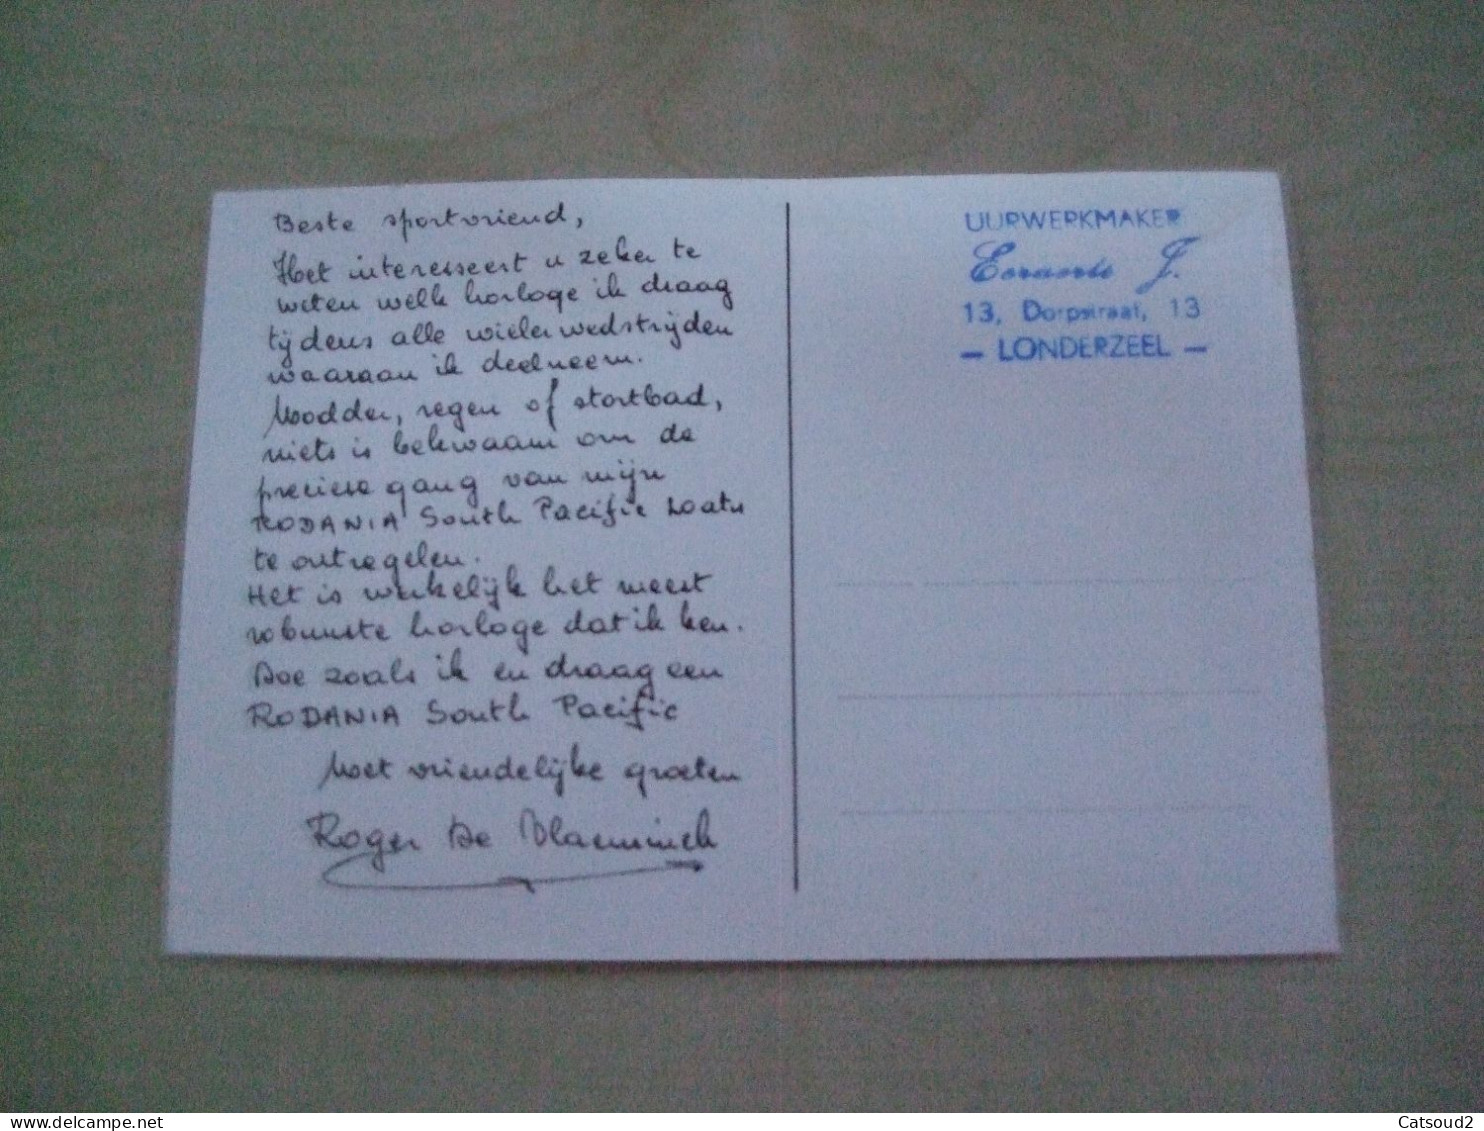 Beste sportvriend,
Het interesseert u zeker te
weten welk horloge ik draag
tijdens alle wielerwedstrijden
waaraan ik deelneem.
Modder, regen of stortbad,
niets is bekwaam om de
preciese gang van mijn
RODANIA South Pacific
te ontregelen.
Het is werkelijk het meest
robuuste horloge dat ik ken.
Doe zoals ik en draag een
RODANIA South Pacific
Met vriendelijke groeten
Roger De Vlaeminck
UURWERKMAKER
J.
13, Dorpstraat, 13
- LONDERZEEL -
Catsoud2